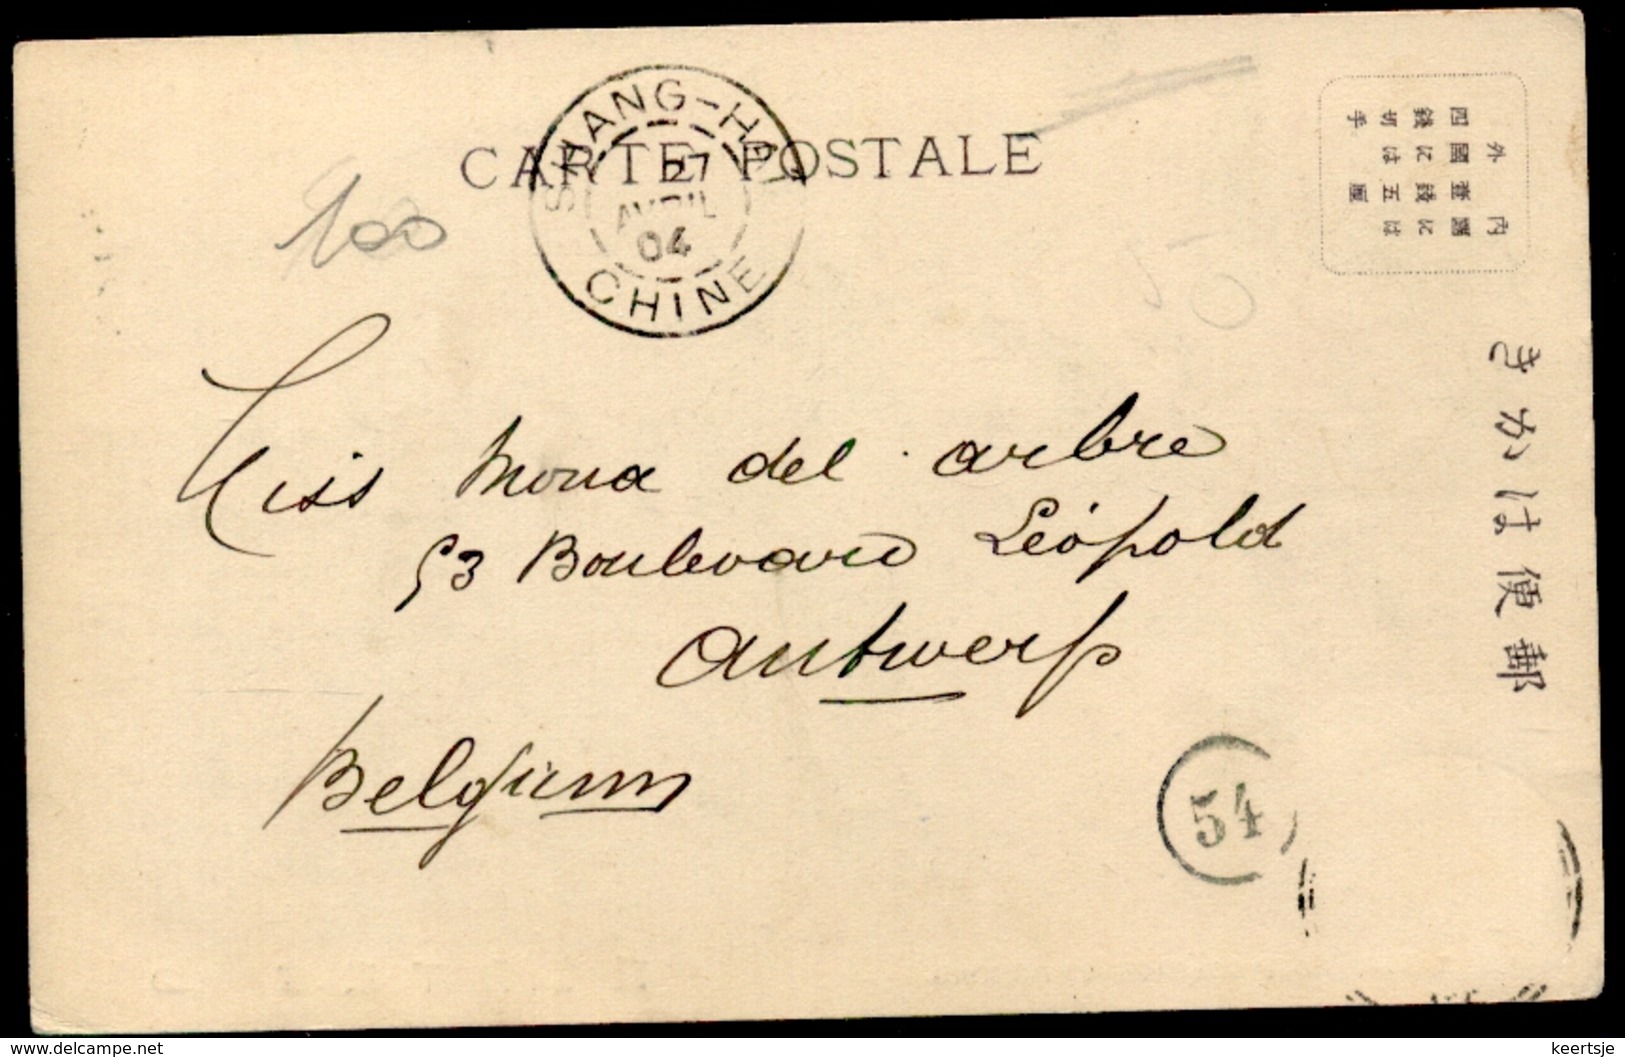 CARTE POSTALE
SHANG-HAI
27
AVRIL
04
CHINE
100
50
外國錢は
內國壹錢五厘
四錢に切手
郵便はかき
Miss Mona del arbre
53 Boulevard Léopold
Antwerp
Belgium
54
www.delcampe.net
keertsje